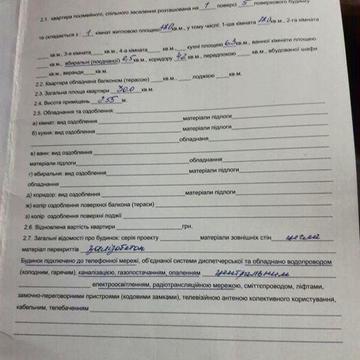 2.1. квартира посімейного, спільного заселення розташована на 1 поверсі 5 поверхового будинку
та складається з 1 кімнат житловою площею 18.0 кв.м., у тому числі: 1-ша кімната 18.0 кв.м., 2-га кімната
кв.м., 3-я кімната кв.м., 4-а кімната кв.м., кухні площею 6.3 кв.м., ванної кімнати площею
кв.м., вбиральні (поєднаної) 2,5 кв.м., коридору кв.м., передпокою кв.м., вбудованої шафи
кв.м., веранди кв.м.
2.2. Квартира обладнана балконом (терасою) кв.м. лоджією кв.м.
2.3. Загальна площа квартири 30.0 кв.м.
2.4. Висота приміщень 255 м.
2.5. Обладнання та оздоблення:
а) кімнат: вид оздоблення матеріали підлоги
б) кухня: вид оздоблення матеріали підлоги
обладнана
в) ванн: вид оздоблення
матеріали підлоги обладнання
г) вбиральня: вид оздоблення матеріали підлоги
обладнання
д) коридор: вид оздоблення матеріали підлоги
ж) колір оздоблення поверхні балкона (тераси)
з) колір оздоблення поверхні лоджії
2.6. Відновлена вартість квартири грн.
2.7. Загальні відомості про будинок: серія проекту матеріали зовнішніх стін цегла
матеріал перекриття залізобетон
Будинок підключено до телефонної мережі, об'єднаної системи диспетчерської та обладнано водопроводом
(холодним, гарячим), каналізацією, газопостачанням, опаленням центральним
електроосвітленням, радіотрансляційною мережою, сміттєпроводом, ліфтами,
замочно-переговорними пристроями (кодовими замками), телевізійною антеною колективного користування,
кабельним, телебаченням